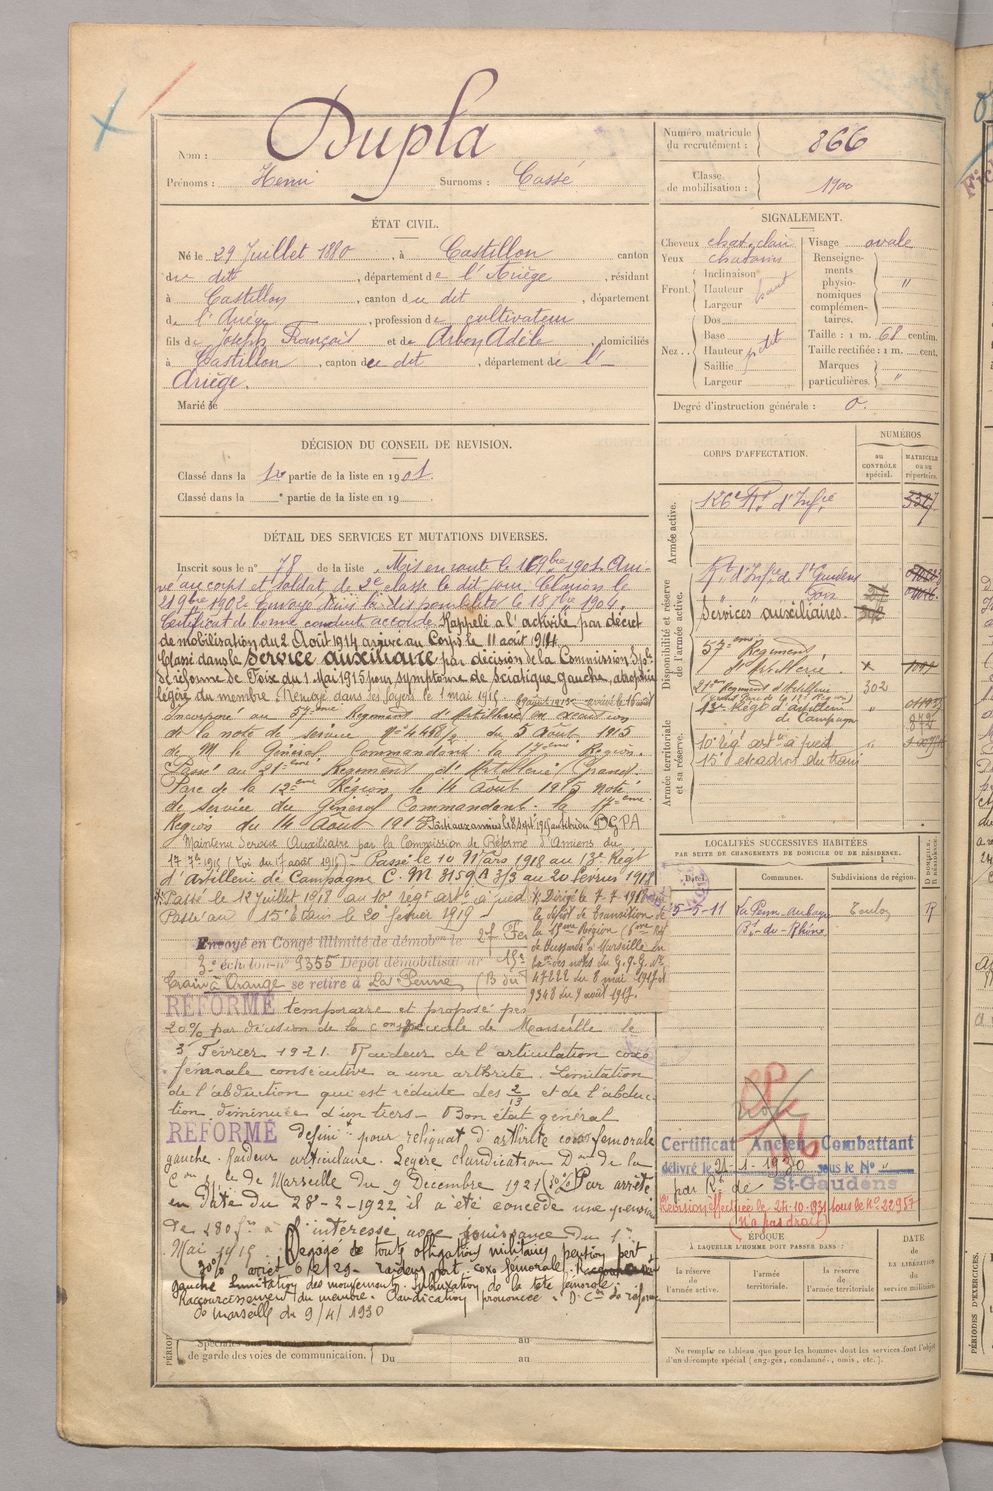 Nom : Dupla
Prénoms : Henri Surnoms : Cassé
Numéro matricule du recrutement : 866
Classe de mobilisation : 1900
ÉTAT CIVIL.
Né le 29 Juillet 1880, à Castillon canton
du dit, département de l'Ariège, résidant
à Castillon, canton du dit, département
de l'Ariège, profession de cultivateur
fils de Joseph François et de Arbon Adèle, domiciliés
à Castillon, canton du dit, département de l'
Ariège.
Marié le
SIGNALEMENT.
Cheveux chat. clair
Yeux chatains
Front Inclinaison
Hauteur haut
Largeur
Nez Dos
Base
Hauteur petit
Saillie
Largeur
Visage ovale
Renseignements physionomiques complémentaires. "
Taille : 1 m. 68 centim.
Taille rectifiée : 1 m. cent.
Marques particulières. "
Degré d'instruction générale : 0.
DÉCISION DU CONSEIL DE REVISION.
Classé dans la 1re partie de la liste en 1901.
Classé dans la e partie de la liste en 19 .
DÉTAIL DES SERVICES ET MUTATIONS DIVERSES.
Inscrit sous le n° 78 de la liste. Mis en route le 16 9bre 1901. Arri-
vé au corps et soldat de 2e classe le dit jour. Clairon le
21 9bre 1902. Envoyé dans la disponibilité le 18 7bre 1904.
Certificat de bonne conduite accordé. Rappelé à l'activité par décret
de mobilisation du 2 Août 1914 arrivé au Corps le 11 août 1914.
Classé dans le Service auxiliaire par décision de la Commission Sple
de réforme de Foix du 1 Mai 1915 pour symptome de sciatique gauche, atrophie
légère du membre. Renvoyé dans ses foyers le 1 mai 1915.
Incorporé au 57ème Régiment d'Artillerie en exécution
de la note de service n° 4468/2 du 5 Août 1915
de M. le Général Commandant la 17ème Région.
Passé au 21ème Régiment d'Artillerie (Grand
Parc de la 12e Région, le 14 août 1915 note
de service du Général Commandant la 17ème
Région du 14 Août 1915
Maintenu Service Auxiliaire par la Commission de Réforme d'Amiens du
17 7bre 1915 (Loi du 17 août 1915). Passé le 10 Mars 1918 au 13e Régt
d'Artillerie de Campagne C. M 3159 A 3/3 au 20 février 1918
Passé le 12 Juillet 1918 au 10e régt artie à pied
Passé au 15e E. train le 20 février 1919
X Dirigé le 7-7-1918
le dépôt de transition de
la 15ème Région
de Hussards à Marseille
des notes du G.Q.G. n°
47222 du 8 mai 1917 et
9348 du 9 août 1917.
Envoyé en Congé illimité de démobon le 27 Fe
3e échelon n° 9355 Dépôt démobilisateur 15e
train à Orange se retire à La Penne (B du
RÉFORMÉ temporaire et proposé pen
20% par décision de la Con spéciale de Marseille le
3 Février 1921. Raideur de l'articulation coxo
fémorale consécutive à une arthrite. Limitation
de l'abduction qui est réduite des 2/3 et de l'abduc-
tion diminuée d'un tiers - Bon état général
RÉFORMÉ définit pour reliquat d'arthrite coxo femorale
gauche. Raideur articulaire. Légère claudication Don de la
Con de Marseille du 9 Décembre 1921 Par arrêté
en date du 28-2-1922 il a été concédé une pension
de 480 frs à l'intéressé avec jouissance du 1er
Mai 1915. Dégagé de toute obligations militaires pension pert
30% arrêt 6/2/29 - raideur art. coxo fémorale
gauche limitation des mouvements. Subluxation de la tête femorale.
Raccourcissement du membre. Claudication prononcée. D. Con de réforme
de Marseille du 9/4/1930
Spéciales aux hommes
de garde des voies de communication. Du au
au
CORPS D'AFFECTATION.
NUMÉROS
AU CONTRÔLE SPÉCIAL.
MATRICULE OU AU RÉPERTOIRE.
Armée active.
126e Rt d'Infie 3317
Disponibilité et réserve de l'armée active.
Rt d'Infie de St Gaudens
" " Foix
Services auxiliaires.
57ème Régiment
d'Artillerie x
21e Régiment d'Artillerie 302
(Grand Parc de la 12e Région)
13e Régt d'artillerie "
de Campagne
Armée territoriale et sa réserve.
10e régt artie à pied "
15e escadron du train
LOCALITÉS SUCCESSIVES HABITÉES
PAR SUITE DE CHANGEMENTS DE DOMICILE OU DE RÉSIDENCE.
Dates. Communes. Subdivisions de région. D DOMICILE. R RÉSIDENCE.
5-5-11 La Penne-du-Rhône Toulon R
Certificat Ancien Combattant
délivré le 21-1-1930 sous le N° "
par Rt de St-Gaudens
Revision effectuée le 24-10-1931 sous le n° 22957
(n'a pas droit)
ÉPOQUE
À LAQUELLE L'HOMME DOIT PASSER DANS :
la réserve de l'armée active.
l'armée territoriale.
la réserve de l'armée territoriale
DATE de LA LIBÉRATION du service militaire.
Ne remplir ce tableau que pour les hommes dont les services font l'objet
d'un décompte spécial (engagés, condamnés, omis, etc.).
PÉRIODES D'EXERCICES.